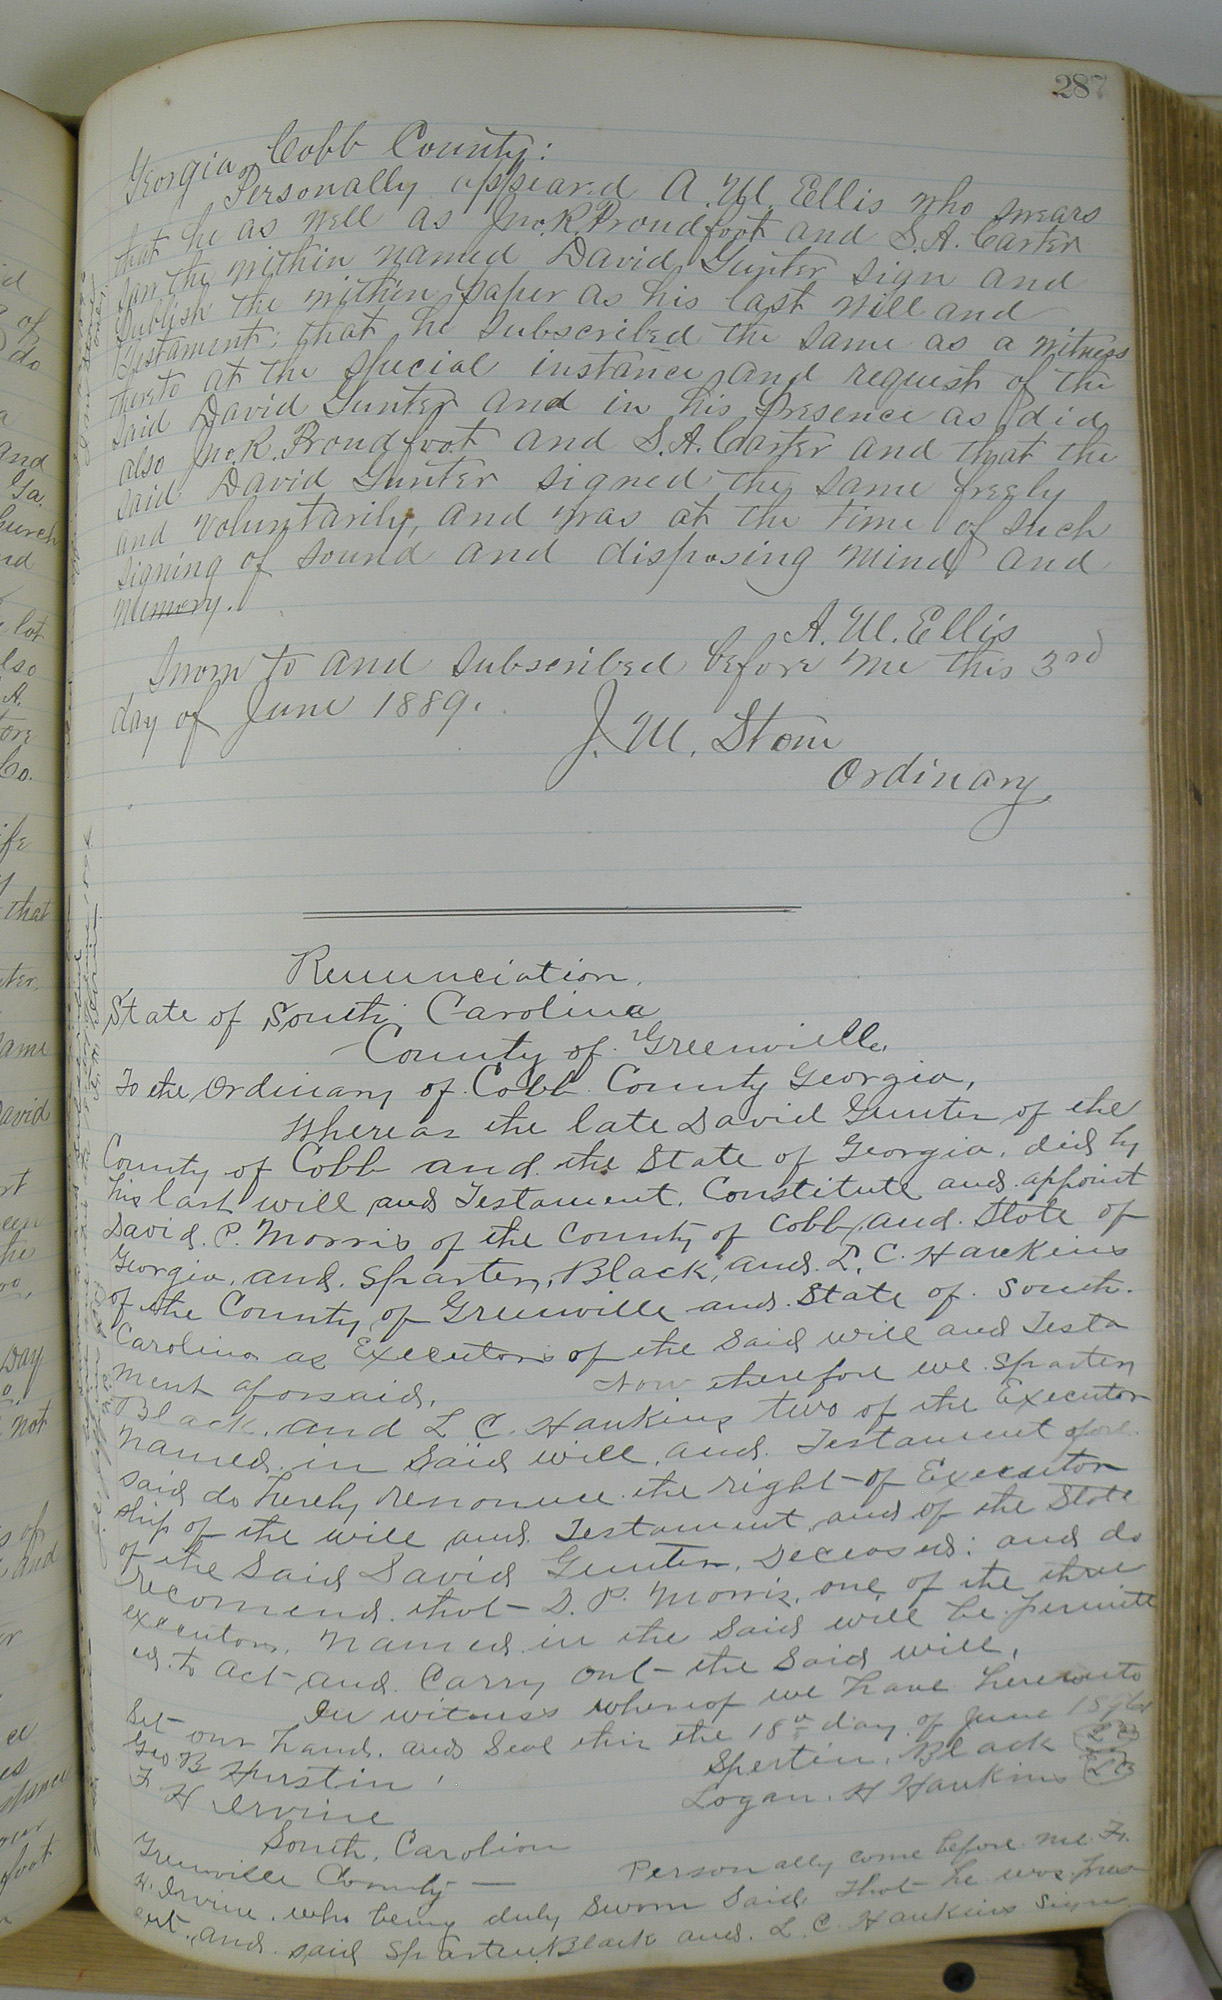 287
Georgia, Cobb County:
Personally appeard A. W. Ellis who swears
that he as well as Jno. R. Proudfoot and S. A. Carter
saw the within named David Gunter sign and
publish the within paper as his last will and
Testament; that he subscribed the same as a witness
thereto at the special instance and request of the
said David Gunter and in his presence as did
also Jno. R. Proudfoot and S. A. Carter and that the
said David Gunter signed the same freely
and voluntarily, and was at the time of such
signing of sound and disposing mind and
memory.
A. W. Ellis
Sworn to and subscribed before me this 3rd
day of June 1889.
J. W. Stone
Ordinary
Renunciation.
State of South Carolina
County of Greenville.
To the Ordinary of Cobb County Georgia,
Whereas the late David Gunter of the
County of Cobb and the State of Georgia, did by
his last will and Testament, Constitute and appoint
David. P. Morris of the County of Cobb and State of
Georgia, and Sparten, Black, and L. C. Hawkins
of the County of Greenville and State of South
Carolina as Executors of the Said will and Testa
ment aforsaid. Now therefore we Sparten
Black, and L C. Hawkins two of the Executor
named in Said will and Testament afore
said do hereby renounce the right of Executor
ship of the will and Testament and of the State
of the Said David Gunter, Deceased: and do
recomend that D. P. Morris, one of the three
executors, named in the Said will be permitt
ed to act and Carry out the Said will,
In witness whereof we have hereunto
Set our hand, and Seal this the 18th day of June
Geo B Hurstin Spertin, Black LS
F H Irvine Logan. H Hawkins LS
South, Carolina
Greenville County — Personally come before me F.
H. Irvine, who being duly Sworn Said that he was pres
ent, and said Sparten Black and L. C. Hawkins Sign